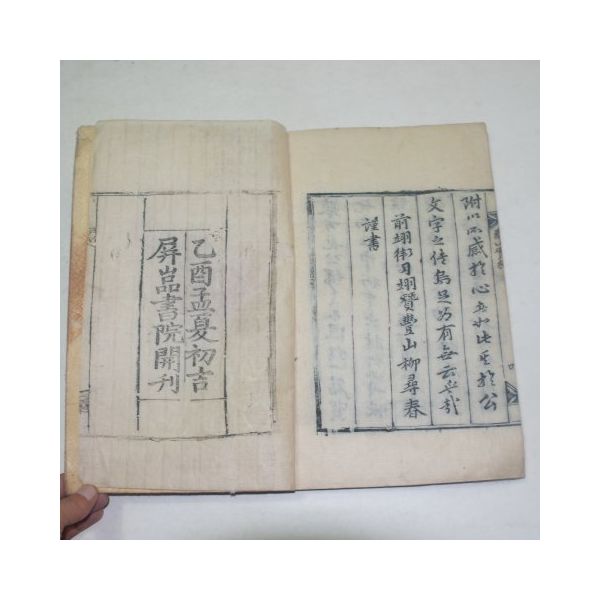 附以所感於心者如此至於公
文字之傳奚足爲有無云乎哉
前翊衛司翊贊豐山柳尋春
謹書
乙酉孟夏初吉
屛巖書院開刊